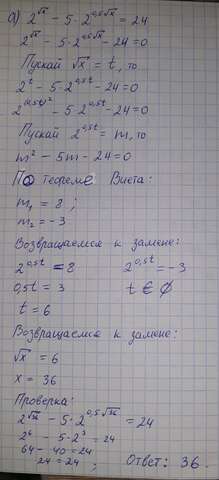 а) 2^√x − 5·2^0,5√x = 24
2^√x − 5·2^0,5√x − 24 = 0
Пускай √x = t, то
2^t − 5·2^0,5t − 24 = 0
2^(0,5t)² − 5·2^0,5t − 24 = 0
Пускай 2^0,5t = m, то
m² − 5m − 24 = 0
По теореме Виета:
m₁ = 8 ;
m₂ = −3
Возвращаемся к замене:
2^0,5t = 8 2^0,5t = −3
0,5t = 3 t ∈ ∅
t = 6
Возвращаемся к замене:
√x = 6
x = 36
Проверка:
2^√36 − 5·2^0,5√36 = 24
2^6 − 5·2^3 = 24
64 − 40 = 24
24 = 24 ; Ответ: 36.